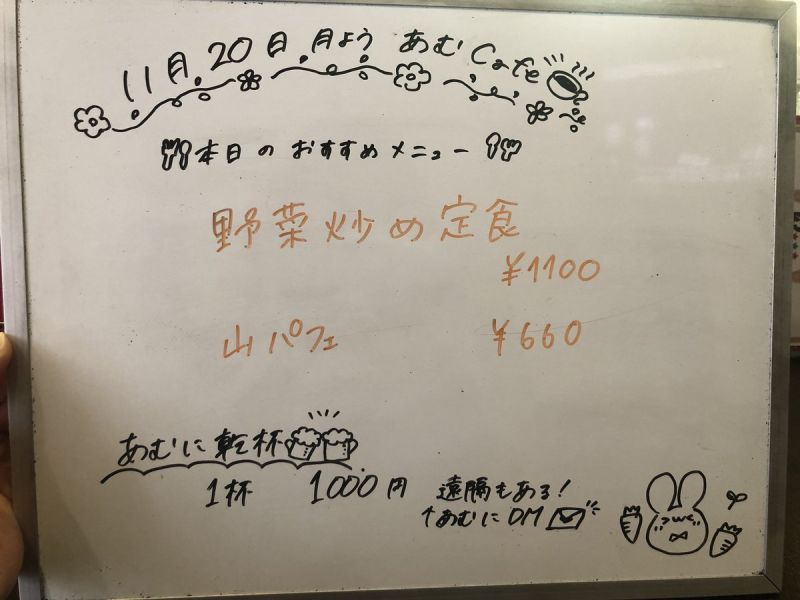 11月20日 月よう あむCafe
本日のおすすめメニュー
野菜炒め定食
¥1100
山パフェ ¥660
あむに乾杯
1杯 1000円
遠隔もある!
↑あむにDM